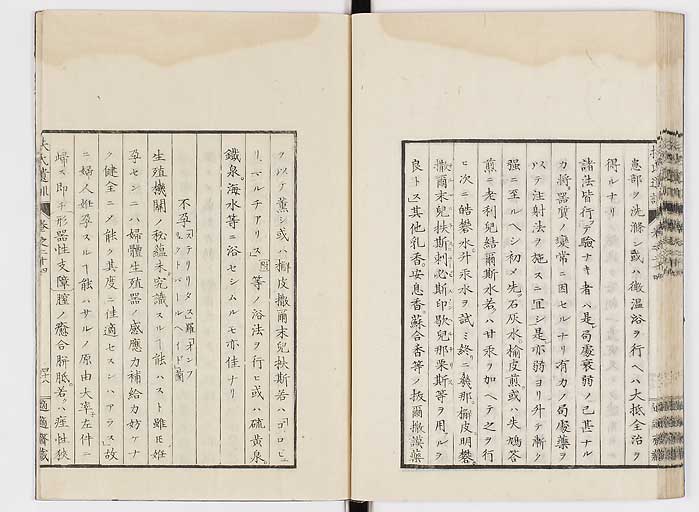 患部ヲ洗滌シ或ハ微温浴ヲ行ヘハ大抵全治ヲ
得ルナリ
諸法皆行テ驗ナキ者ハ是局處衰弱ノ已甚ナル
カ將器質ノ變常ニ因セルナリ有力ノ局處藥ヲ
以テ注射法ヲ施スニ宜シ是亦弱ヨリ升テ漸ク
强ニ至ルヘシ初メ先石灰水榆皮煎或ハ失鳩答
煎ニ老利兒結爾斯水若ハ甘汞ヲ加ヘテ之ヲ行
ヒ次ニ皓礬水升汞水ヲ試ミ終ニ幾那榭皮明礬
撒爾末兒扶斯刺必斯印歇兒那栗斯等ヲ用ルヲ
良トス其他乳香安息香蘇合香等ノ抜爾撒謨藥
ヲ以テ薰シ或ハ榭皮撒爾末兒扶斯若ハ
等ノ浴法ヲ行ヒ或ハ硫黄泉
鐵泉海水等ニ浴セシムルモ亦佳ナリ
不孕
生殖機關ノ秘蘊未究識スル能ハスト雖モ姙
孕センニハ婦體生殖器ノ感應力補給力妨ケナ
ク健全ニメ能ク其度ニ佳適セスンハアラス故
ニ婦人姙孕スル能ハサルノ原由大率左件ニ
歸ス即形器性支障膣ノ癒合胼胝若ハ痙性狹
扶氏遺訓 卷之二十四
適適齋藏